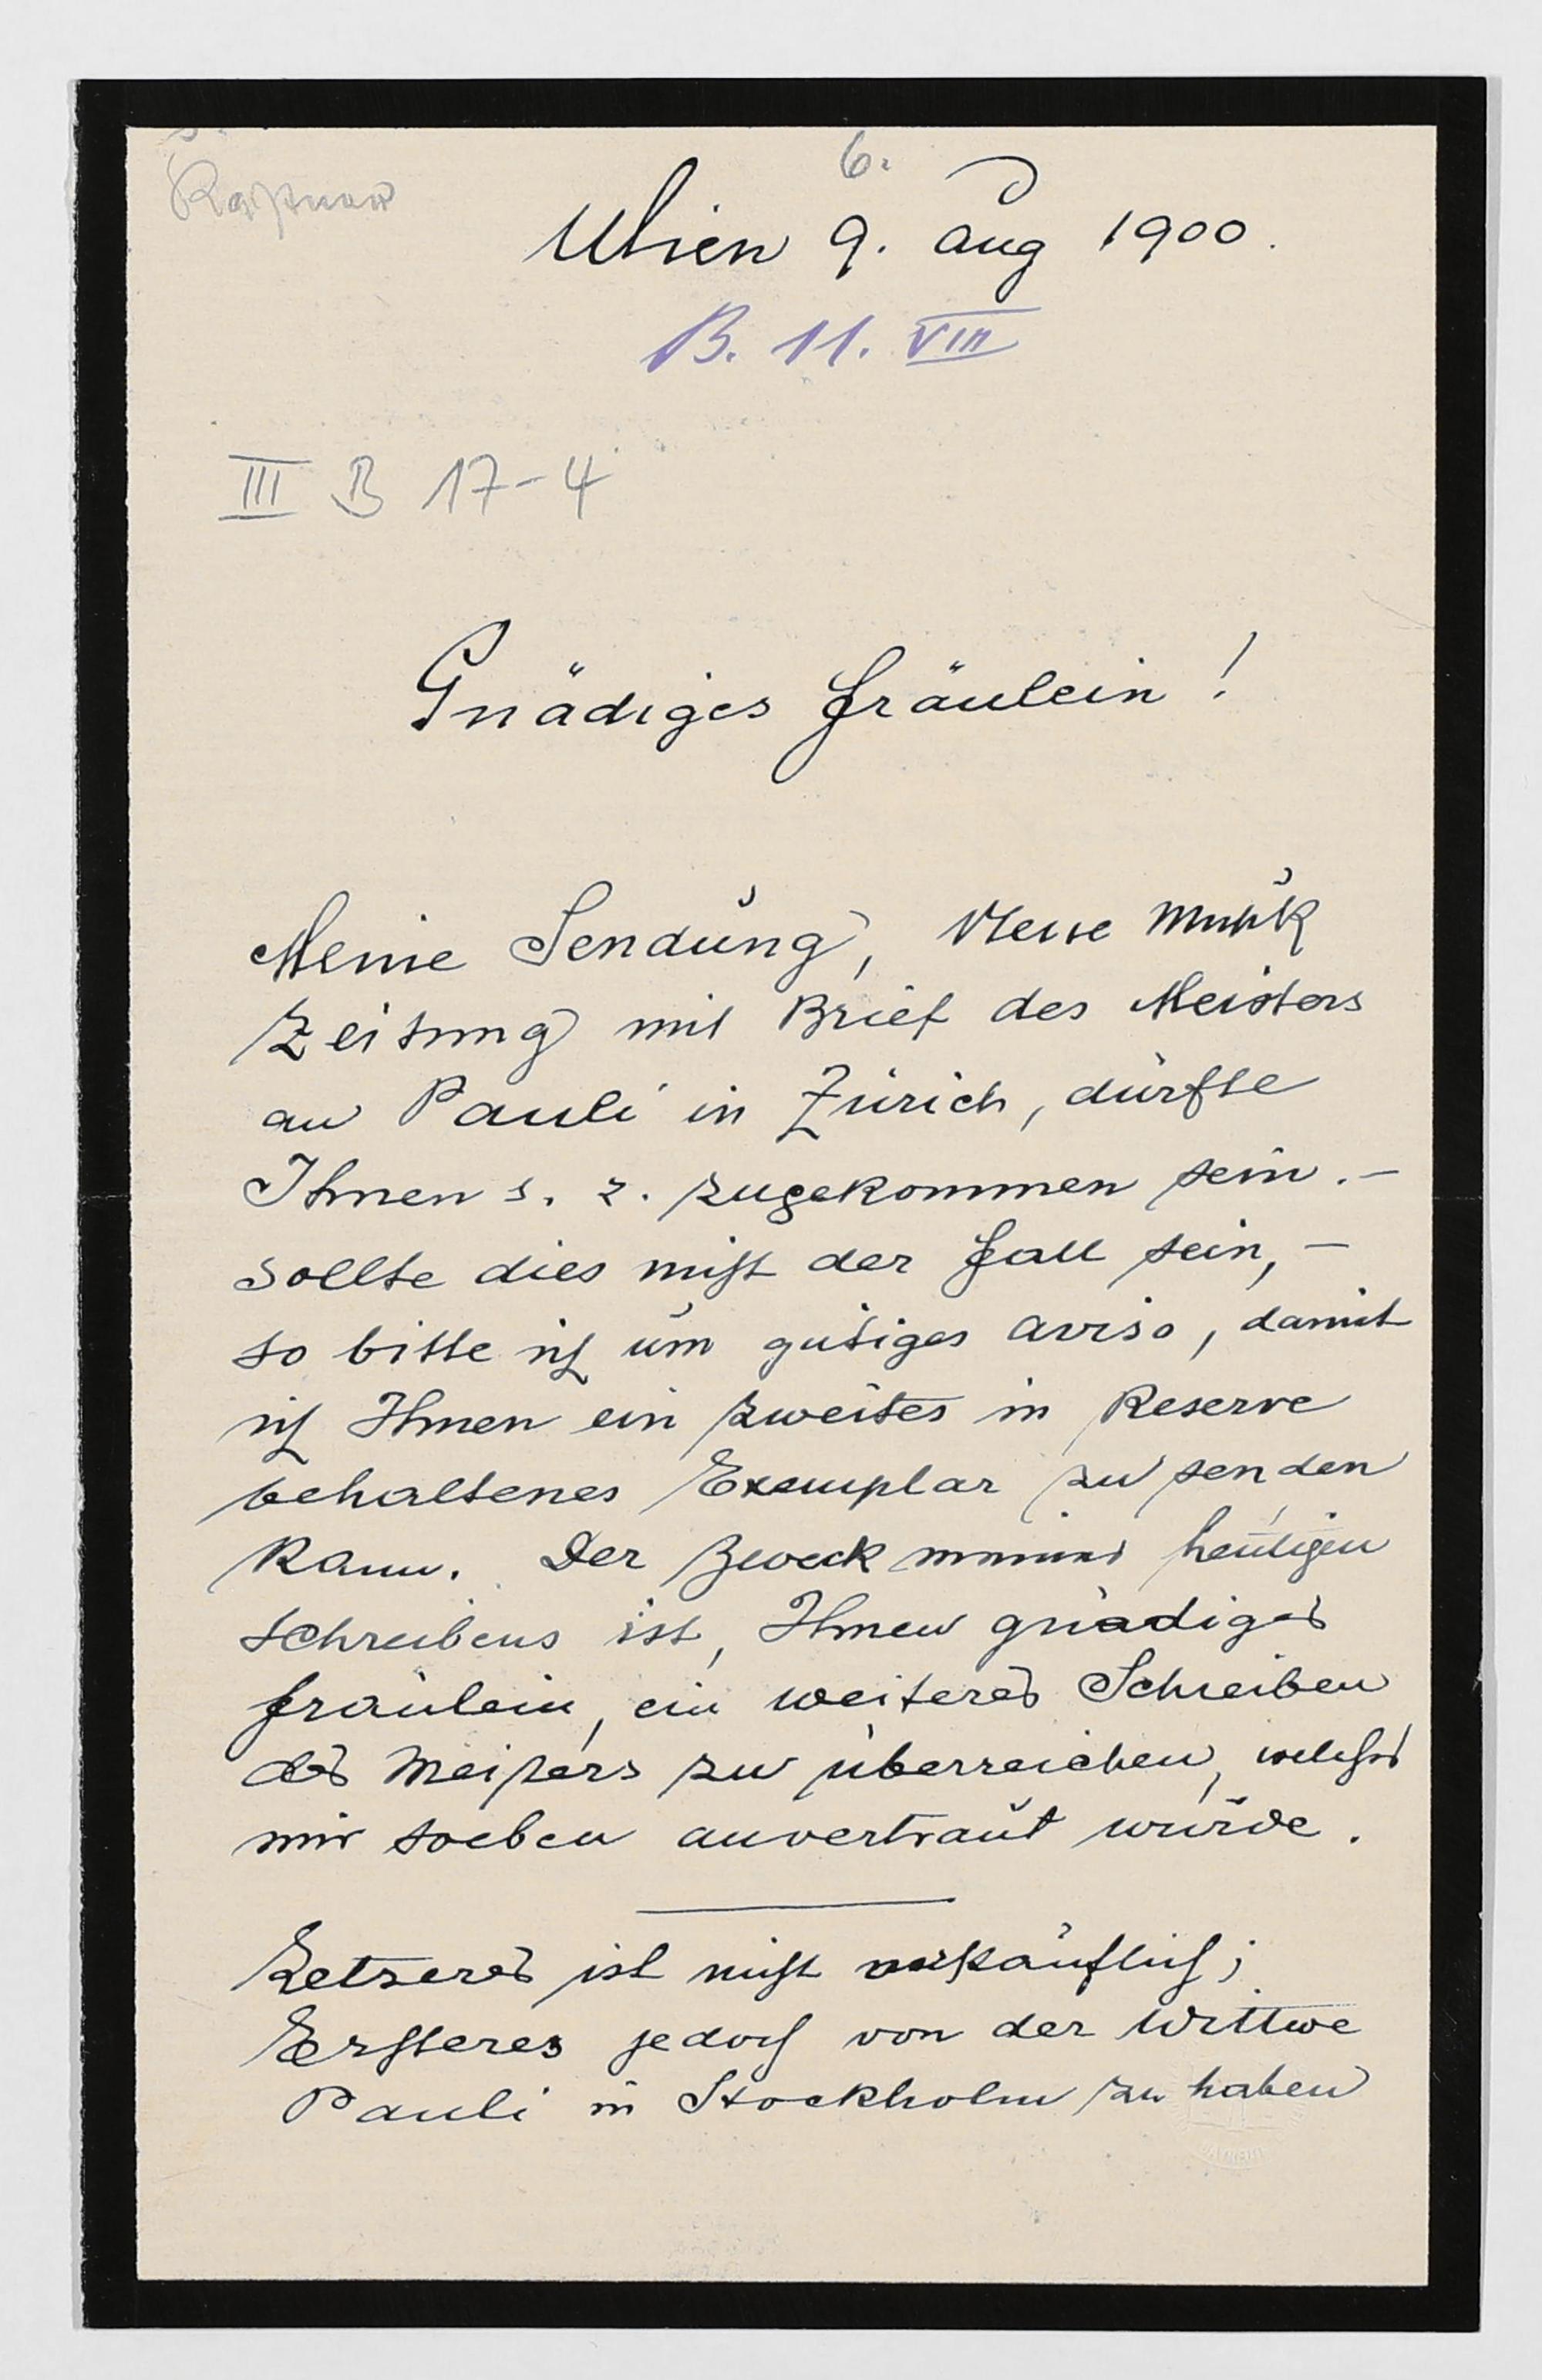 6.
Kastner
Wien 9. Aug 1900.
B. 11. VIII
III B 17-4
Gnädiges Fräulein!
Meine Sendung, Neue Musik
Zeitung mit Brief des Meisters
an Pauli in Zürich, dürfte
Ihnen s. z. zugekommen sein.—
Sollte dies nicht der Fall sein,—
so bitte ich um gütiges Aviso, damit
ich Ihnen ein zweites in Reserve
behaltenes Exemplar zu senden
kann. Der Zweck meines heutigen
Schreibens ist, Ihnen gnädiges
Fräulein, ein weiteres Schreiben
des Meisters zu überreichen, welches
mir soeben anvertraut wurde.
Letzeres ist nicht verkäuflich;
Ersteres jedoch von der Wittwe
Pauli in Stockholm zu haben